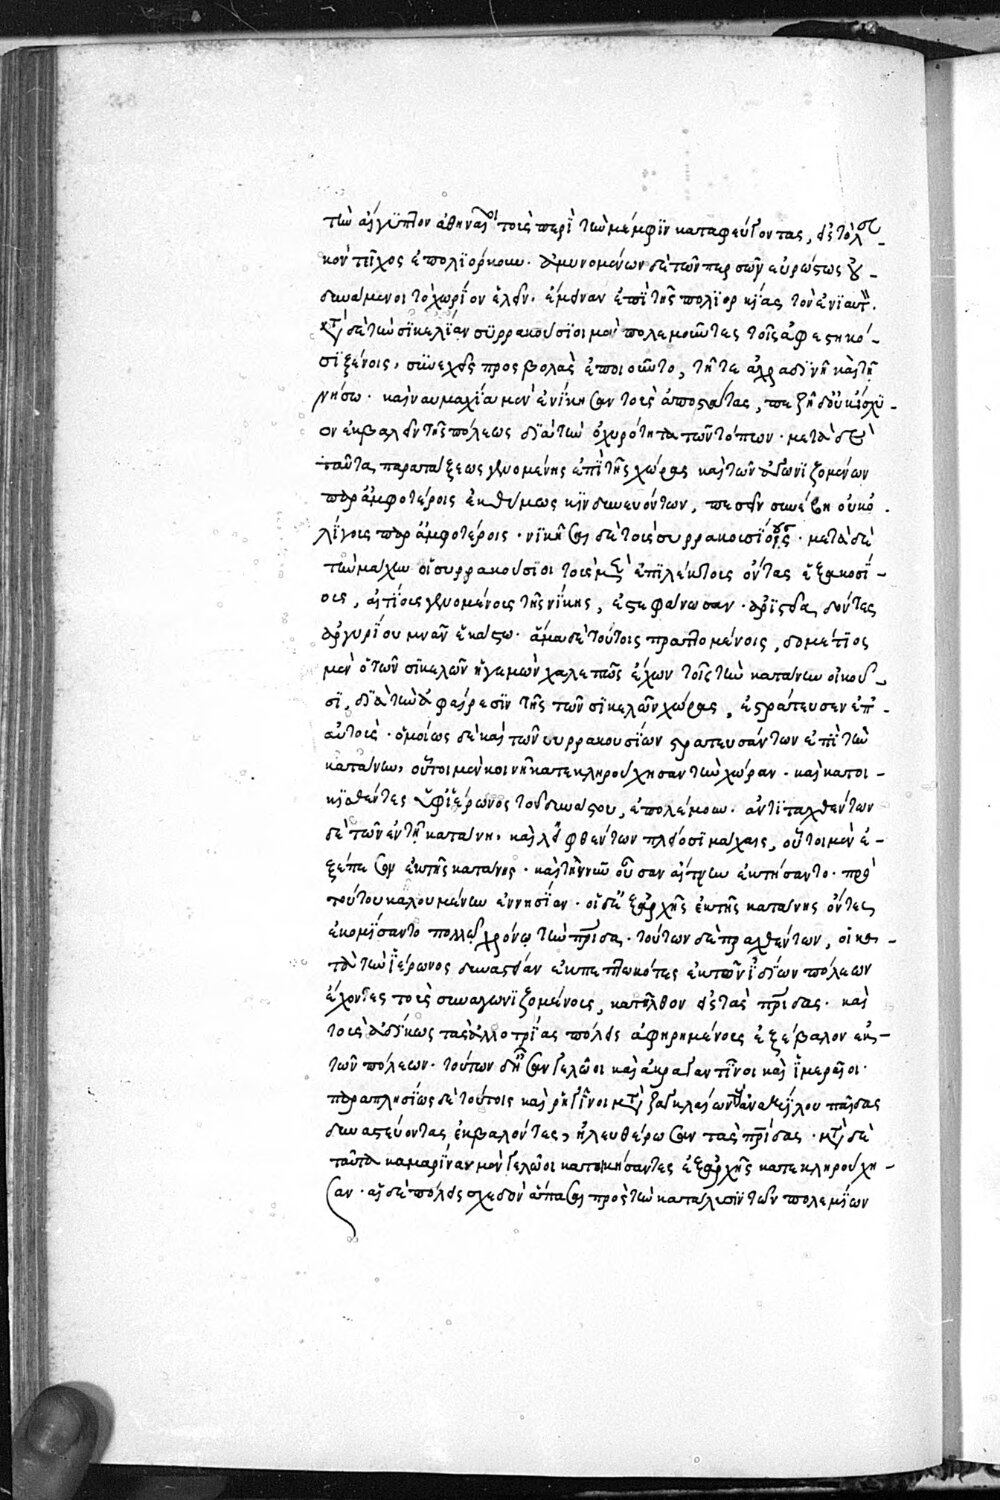 τὴν αἴγυπτον ἀθηναῖοι τοὺς περὶ τὴν μέμφϊν καταφεύγοντας, εἰς τὸ λευ-
κὸν τεῖχος ἐπολϊόρκουν· ἀμυνομένων δὲ τῶν περσῶν εὐρώστως οὐ-
δυνάμενοι τὸ χωρίον ἑλεῖν. ἔμειναν ἐπὶ τῆς πολϊορκίας τὸν ἐνϊαυτ.
κατὰ δὲ τὴν σϊκελίαν σϋρρακούσϊοι μὲν πολεμοῦντες τοῖς ἀφεστηκό-
σϊ ξένοις, συνεχεῖς προσβολὰς ἐποιοῦντο, τῇ τε ἀχραδϊνῇ καὶ τῇ
νήσω· καὶ ναυμαχία μὲν ἐνίκησαν τοὺς ἀποστάτας, πεζῇ δ' οὐκ ἴσχϋ-
ον ἐκβαλεῖν τῆς πόλεως δϊὰ τὴν ὀχυρότητα τῶν τόπων· μετὰ δὲ
ταῦτα παρατάξεως γενομένης ἐπὶ τῆς χώρας καὶ τῶν ἀγωνϊζομένων
παρ ἀμφοτέροις ἐκθύμως κϊνδυνευόντων, πεσεῖν συνέβη οὐκ ὀ-
λίγοις παρ ἀμφοτέροις· νϊκῆσαι δὲ τοὺς συρρακοισίους· μετὰ δὲ
τὴν μάχην οἱ συρρακούσϊοι τοὺς μὲν ἐπϊλέκτοις ὄντας ἑξακοσί-
οις, αἰτίοις γενομένοις τῆς νίκης, ἐστεφάνωσαν· ἀρϊστεῖα δόντες
ἀργυρίου μνᾶν ἑκάστω· ἅμα δὲ τούτοις πραττομένοις, δομέτϊος
μὲν ὁ τῶν σϊκελῶν ἡγεμὼν χαλεπῶς ἔχων τοῖς τὴν κατάνην οἰκοῦ-
σϊ, δϊὰ τὴν ἀφαίρεσϊν τῆς τῶν σϊκελῶν χώρας, ἐστράτευσεν ἐπ'
αὐτοὺς· ὁμοίως δὲ καὶ τῶν συρρακουσίων στρατευσάντων ἐπὶ τὴν
κατάνην, οὗτοι μὲν κοινῇ κατεκληρούχησαν τὴν χώραν· καὶ κατοι-
κϊσθέντες ὑφ' ἱέρωνος τοῦ δυνάστου, ἐπολέμουν· ἀντϊταχθέντων
δὲ τῶν ἐν τῇ κατάνῃ, καὶ λειφθέντων πλείοσϊ μάχαις, οὗτοι μὲν ἐ-
ξέπεσον ἐκ τῆς κατάνης· καὶ τὴν νῦν οὖσαν αἴτνην ἐκτήσαντο· πρὸ
τούτου καλουμένην ἐννησίαν· οἱ δ' ἐξ ἀρχῆς ἐκ τῆς κατάνης ὄντες
ἐκομίσαντο πολλῷ χρόνω τὴν πατρίδα· τούτων δὲ πραχθέντων, οἱ κα-
τὰ τὴν ἱέρωνος δυναστείαν ἐκπεπτωκότες ἐκ τῶν ἰδίων πόλεων
ἔχοντες τοὺς συναγωνϊζομένοις, κατῆλθον εἰς τὰς πατρίδας· καὶ
τοὺς ἀδίκως τὰς ἀλλοτρίας πόλεις ἀφηρημένους ἐξέβαλον ἐκ-
τῶν πόλεων· τούτων δὴ ἦσαν γελῶοι καὶ ἀκραγαντῖνοι καὶ ἱμεραῖοι·
παραπλησίως δὲ τούτοις καὶ ῥηγῖνοι μετὰ ζαγκλαίων τοὺς ἀναξίλου παῖδας
δυναστεύοντας ἐκβαλόντες, ἠλευθέρωσαν τὰς πατρίδας· μετὰ δὲ
ταῦτα καμαρίναν μὲν γελῶοι κατοικήσαντες ἐξ ἀρχῆς κατεκληρούχη-
σαν· αἱ δὲ πόλεις σχεδὸν ἅπασαι πρὸς τὴν κατάλυσϊν τῶν πολεμίων